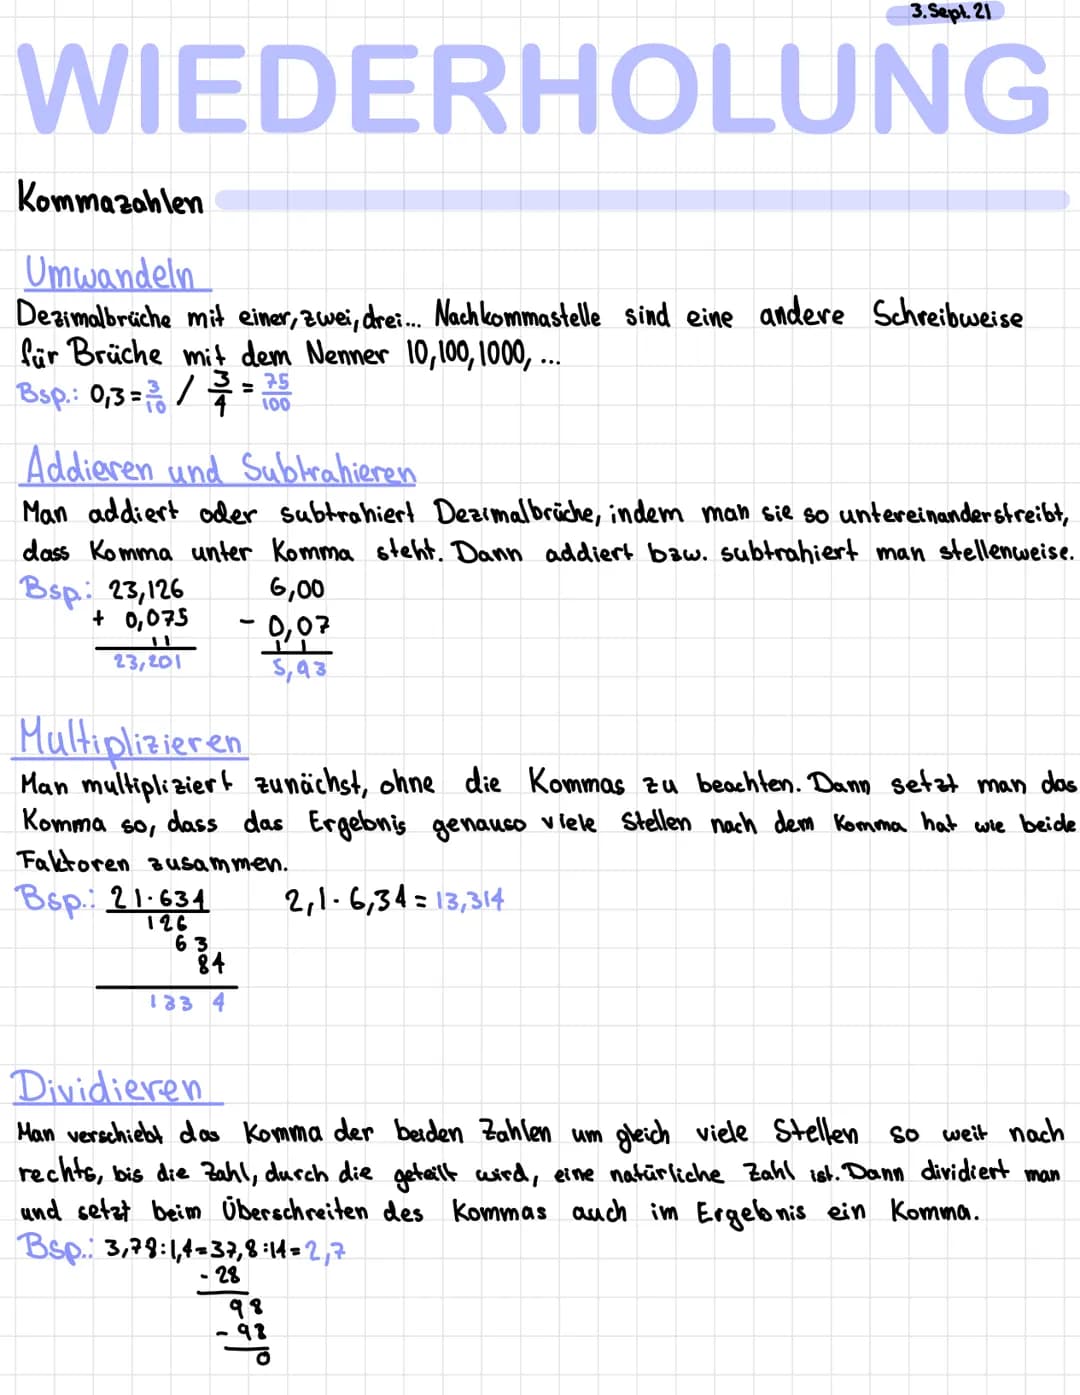 3. Sept. 21
WIEDERHOLUNG
Kommazahlen
Umwandeln
Dezimalbrüche mit einer, zwei, drei... Nachkommastelle sind eine andere Schreibweise
für Brüche mit dem Nenner 10, 100, 1000, ...
Bsp.: 0,3 = 3/10 / 3/4 = 75/100
Addieren und Subtrahieren
Man addiert oder subtrahiert Dezimalbrüche, indem man sie so untereinanderstreibt,
dass Komma unter Komma steht. Dann addiert bzw. subtrahiert man stellenweise.
Bsp.: 23,126 6,00
+ 0,075 - 0,07
11 1 1
23,201 5,93
Multiplizieren
Man multipliziert zunächst, ohne die Kommas zu beachten. Dann setzt man das
Komma so, dass das Ergebnis genauso viele Stellen nach dem Komma hat wie beide
Faktoren zusammen.
Bsp.: 21·634 2,1·6,34 = 13,314
126
63
84
133 4
Dividieren
Man verschiebt das Komma der beiden Zahlen um gleich viele Stellen so weit nach
rechts, bis die Zahl, durch die geteilt wird, eine natürliche Zahl ist. Dann dividiert man
und setzt beim Überschreiten des Kommas auch im Ergebnis ein Komma.
Bsp.: 3,78:1,4=37,8:14=2,7
- 28
98
- 98
0